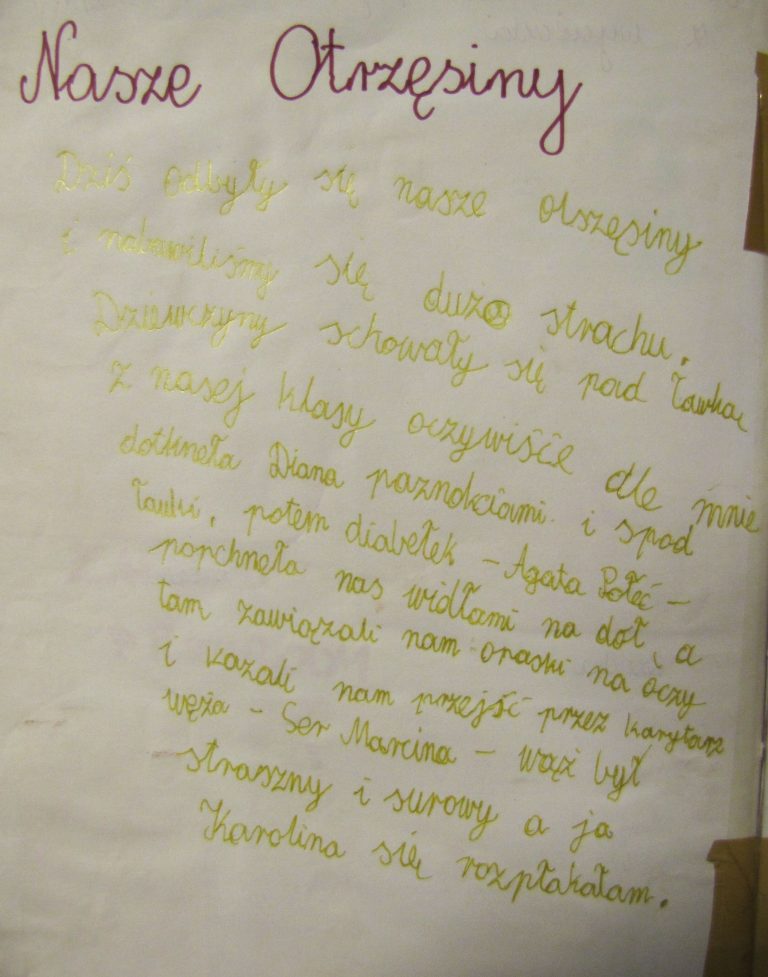 Nasze Otrzęsiny
Dziś odbyły się nasze otszęsiny
i nabawiliśmy się dużo strachu.
Dziewczyny schowały się pod ławką
z nasej klasy oczywiście dle mnie
dotkneła Diana paznokciami i spod
ławki, potem diabełek - Agata Połeć -
popchneła nas widłami na dół, a
tam zawiązali nam opaski na oczy
i kazali nam przejść przez karytarz
węża - Ser Marcina - wąż był
straszny i surowy a ja
Karolina się rozpłakałam.